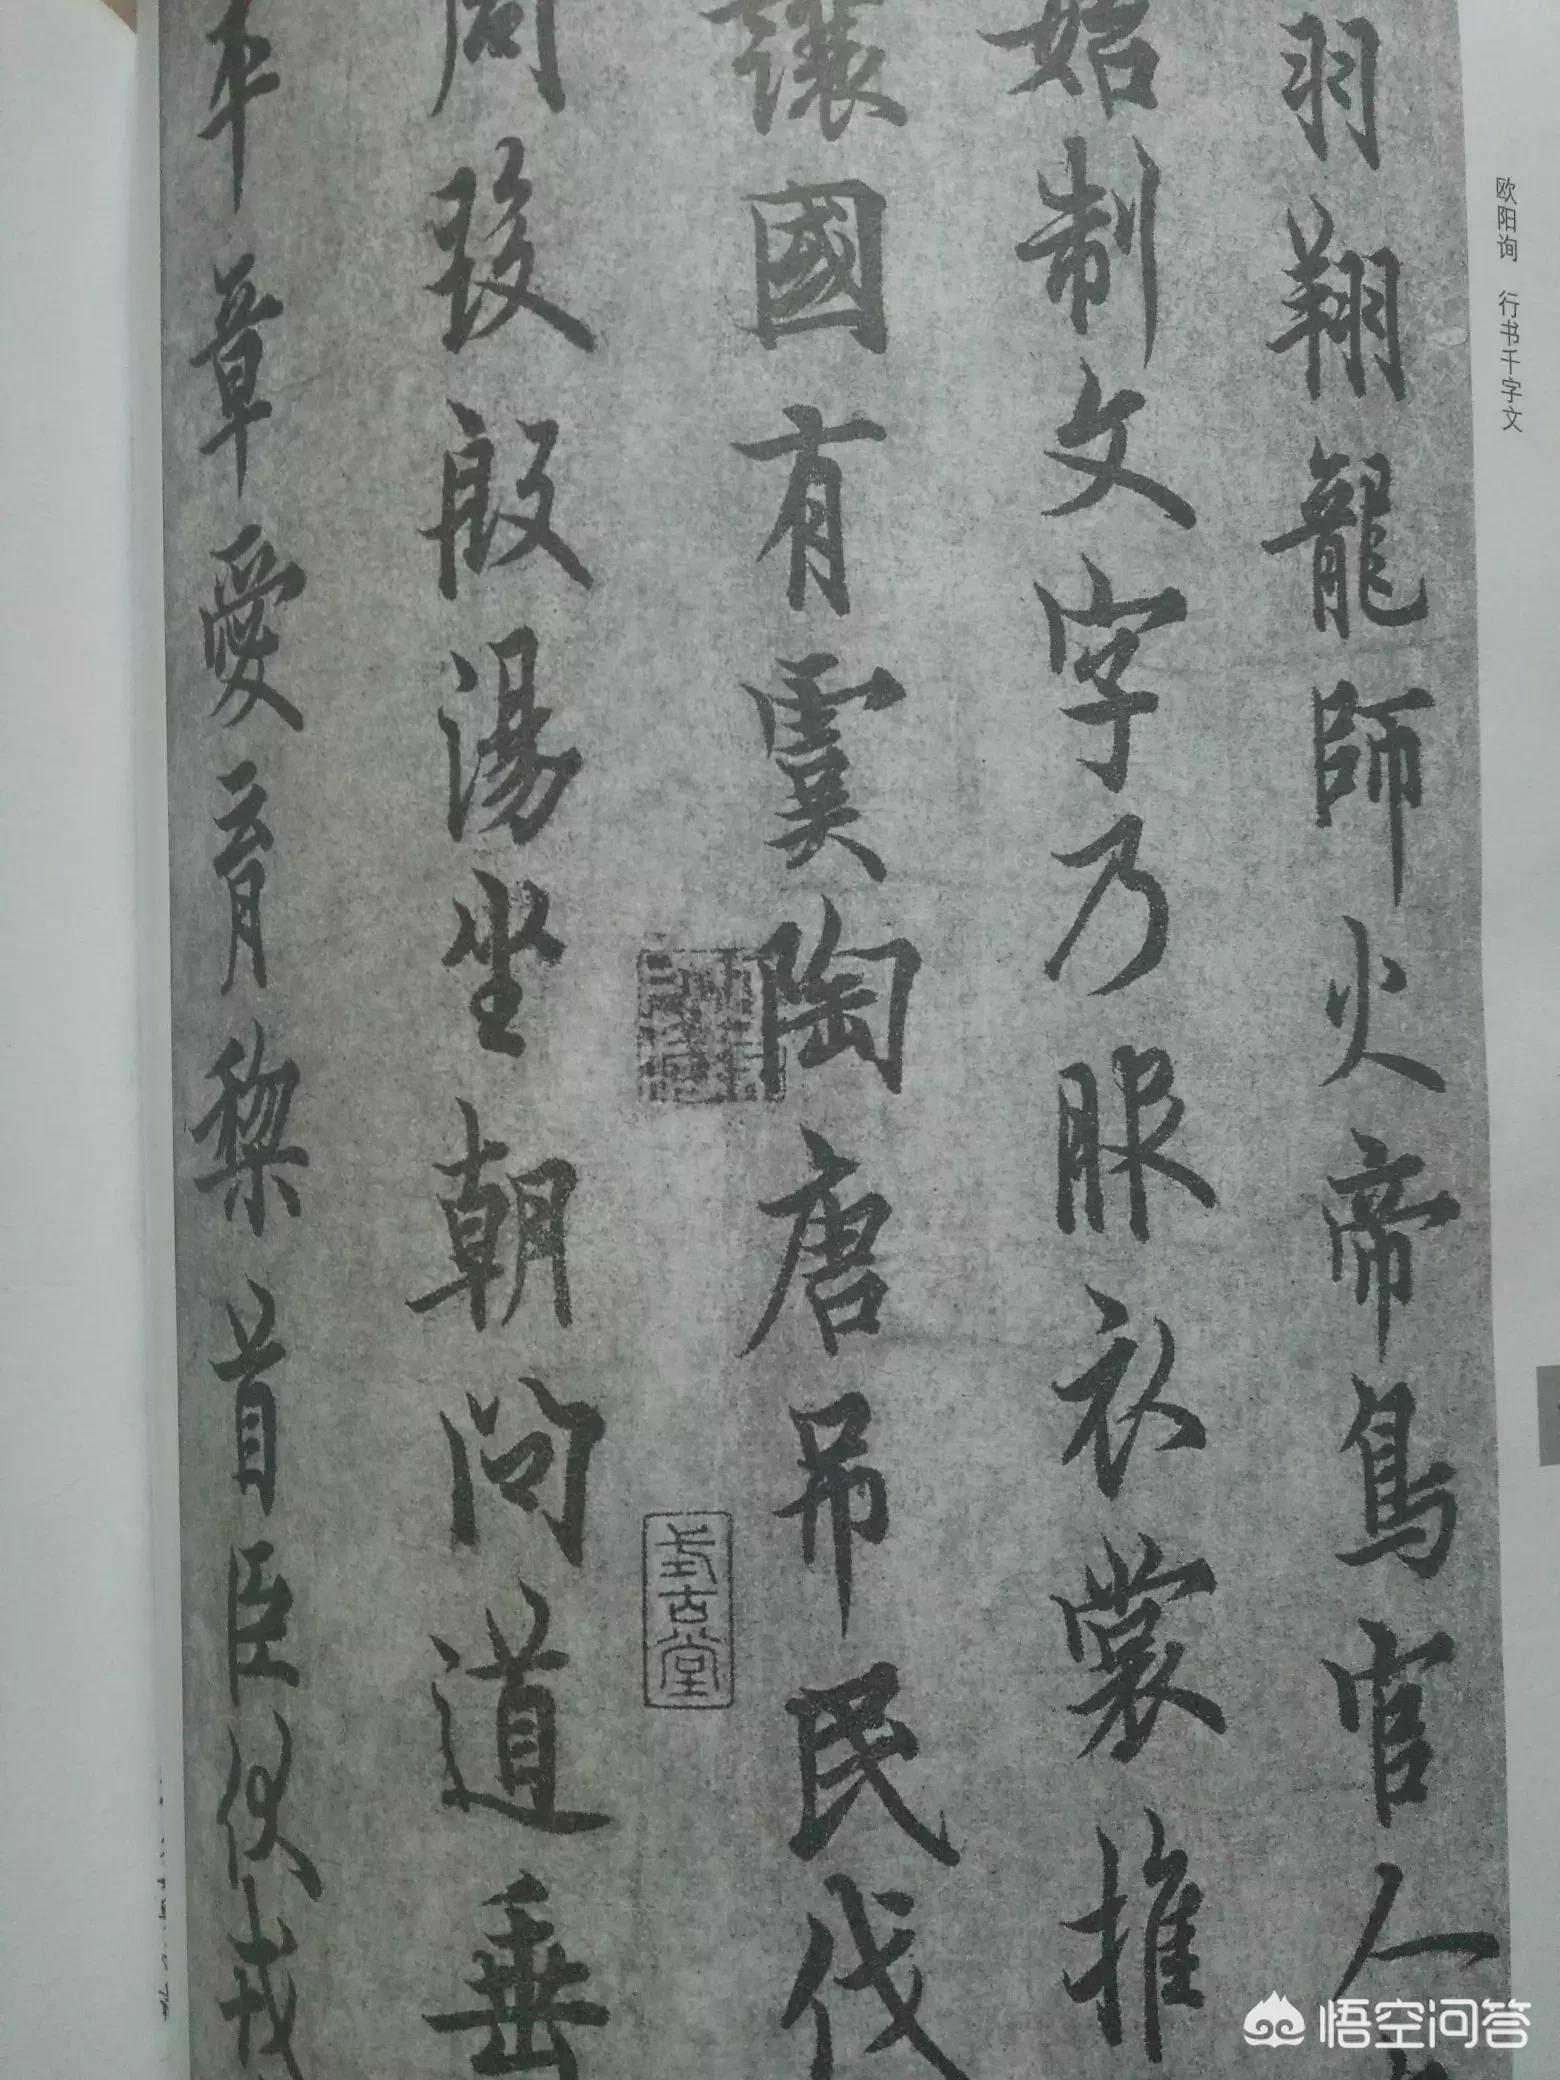 欧阳询 行书千字文
羽翔龍師火帝鳥官人
始制文字乃服衣裳推
讓國有虞陶唐吊民伐
周發殷湯坐朝問道垂
平章愛育黎首臣伏戎
封古堂
悟空问答